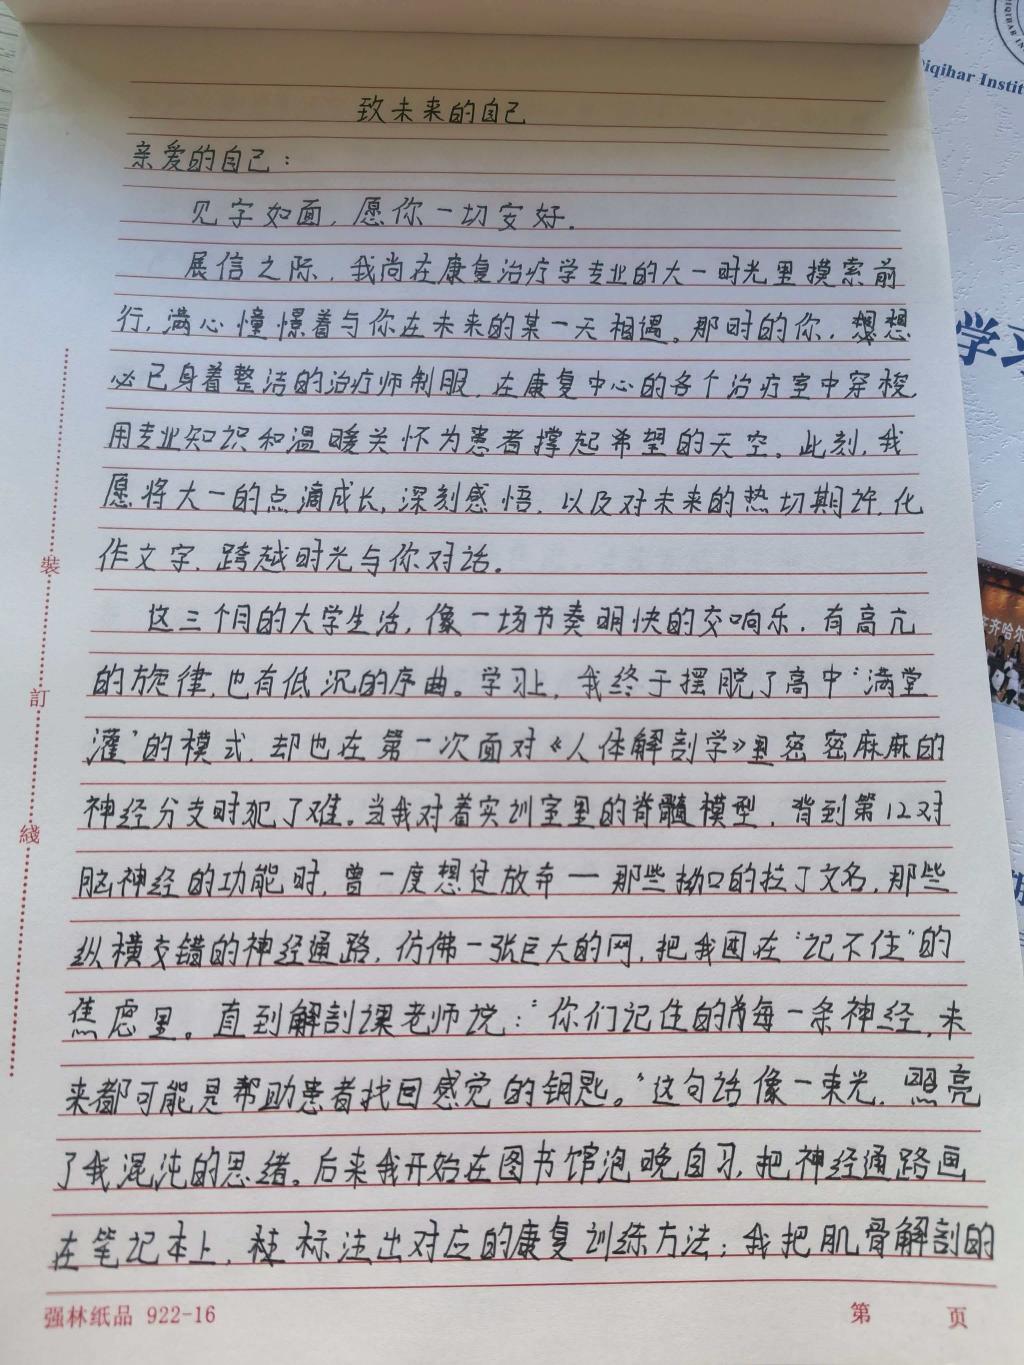 致未来的自己
亲爱的自己：
见字如面，愿你一切安好。
展信之际，我尚在康复治疗学专业的大一时光里摸索前
行，满心憧憬着与你在未来的某一天相遇。那时的你，想
必已身着整洁的治疗师制服，在康复中心的各个治疗室中穿梭，
用专业知识和温暖关怀为患者撑起希望的天空。此刻，我
愿将大一的点滴成长，深刻感悟，以及对未来的热切期许，化
作文字，跨越时光与你对话。
这三个月的大学生活，像一场节奏明快的交响乐，有高亢
的旋律，也有低沉的序曲。学习上，我终于摆脱了高中“满堂
灌”的模式，却也在第一次面对《人体解剖学》里密密麻麻的
神经分支时犯了难。当我对着实训室里的脊髓模型，背到第12对
脑神经的功能时，曾一度想过放弃—那些拗口的拉丁文名，那些
纵横交错的神经通路，仿佛一张巨大的网，把我困在“记不住”的
焦虑里。直到解剖课老师说：“你们记住的每一条神经，未
来都可能是帮助患者找回感觉的钥匙。”这句话像一束光，照亮
了我混沌的思绪。后来我开始在图书馆泡晚自习，把神经通路画
在笔记本上，标注出对应的康复训练方法；我把肌骨解剖的
裝
訂
綫
强林纸品 922-16
第 页
Qiqihar Instit
学习
齐齐哈尔